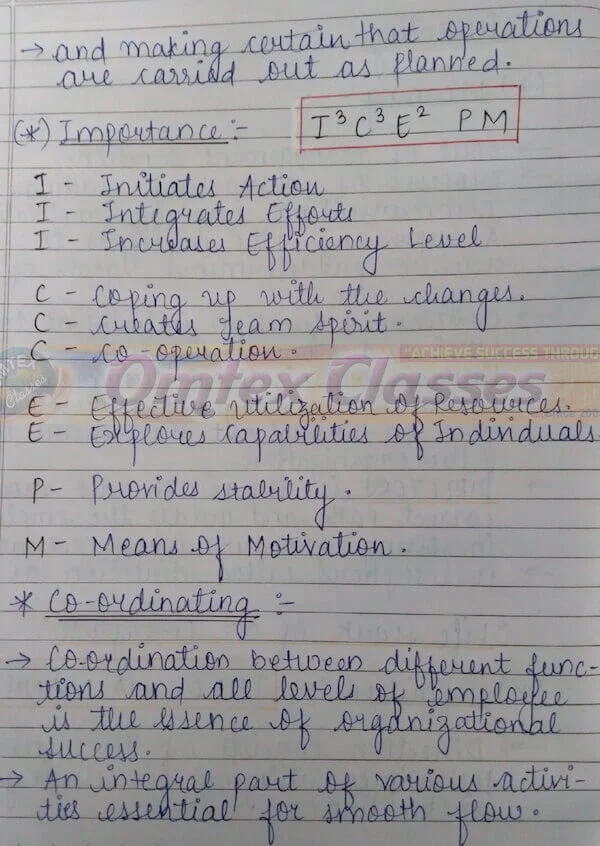 → and making certain that operations
are carried out as planned.
(*) Importance :- I³C³E² PM
I - Initiates Action
I - Integrates Efforts
I - Increases Efficiency Level
C - Coping up with the changes.
C - Creates Team Spirit.
C - Co-operation.
"ACHIEVE SUCCESS THROUG
OMTEX
Classes
Omtex Classes
SINCE 200
E - Effective Utilization of Resources.
E - Explores Capabilities of Individuals
P - Provides stability.
M - Means of Motivation.
* Co-ordinating :-
→ Co-ordination between different func-
tions and all levels of employee
is the essence of organizational
success.
→ An integral part of various activi-
ties essential for smooth flow.